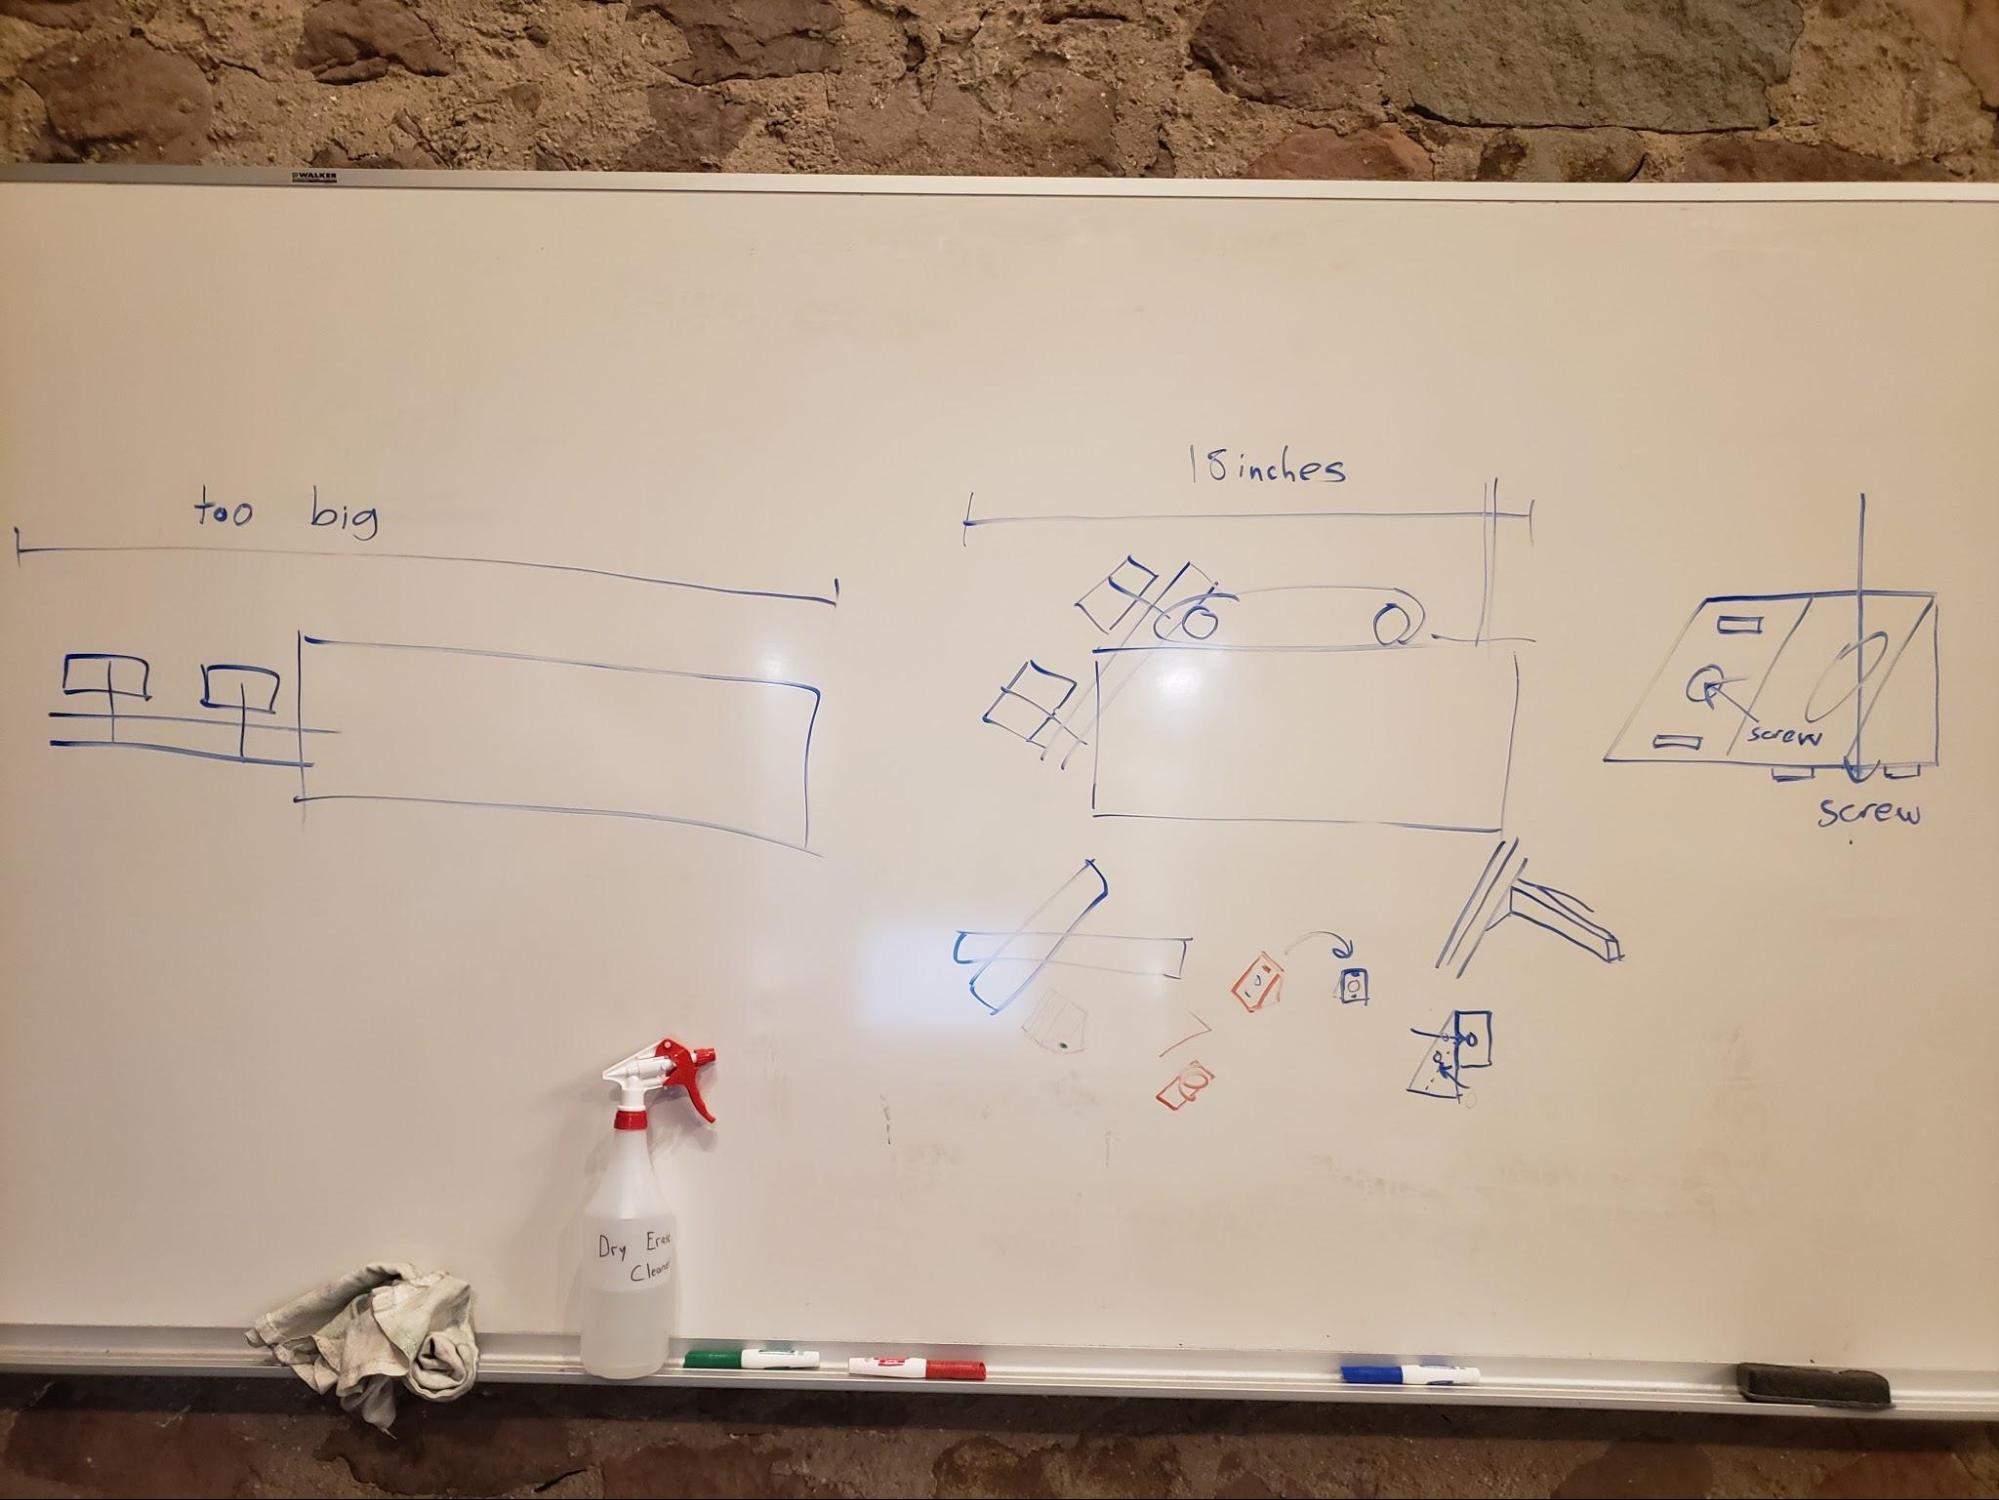 WALKER
too big
18 inches
screw
screw
Dry Erase
Cleaner